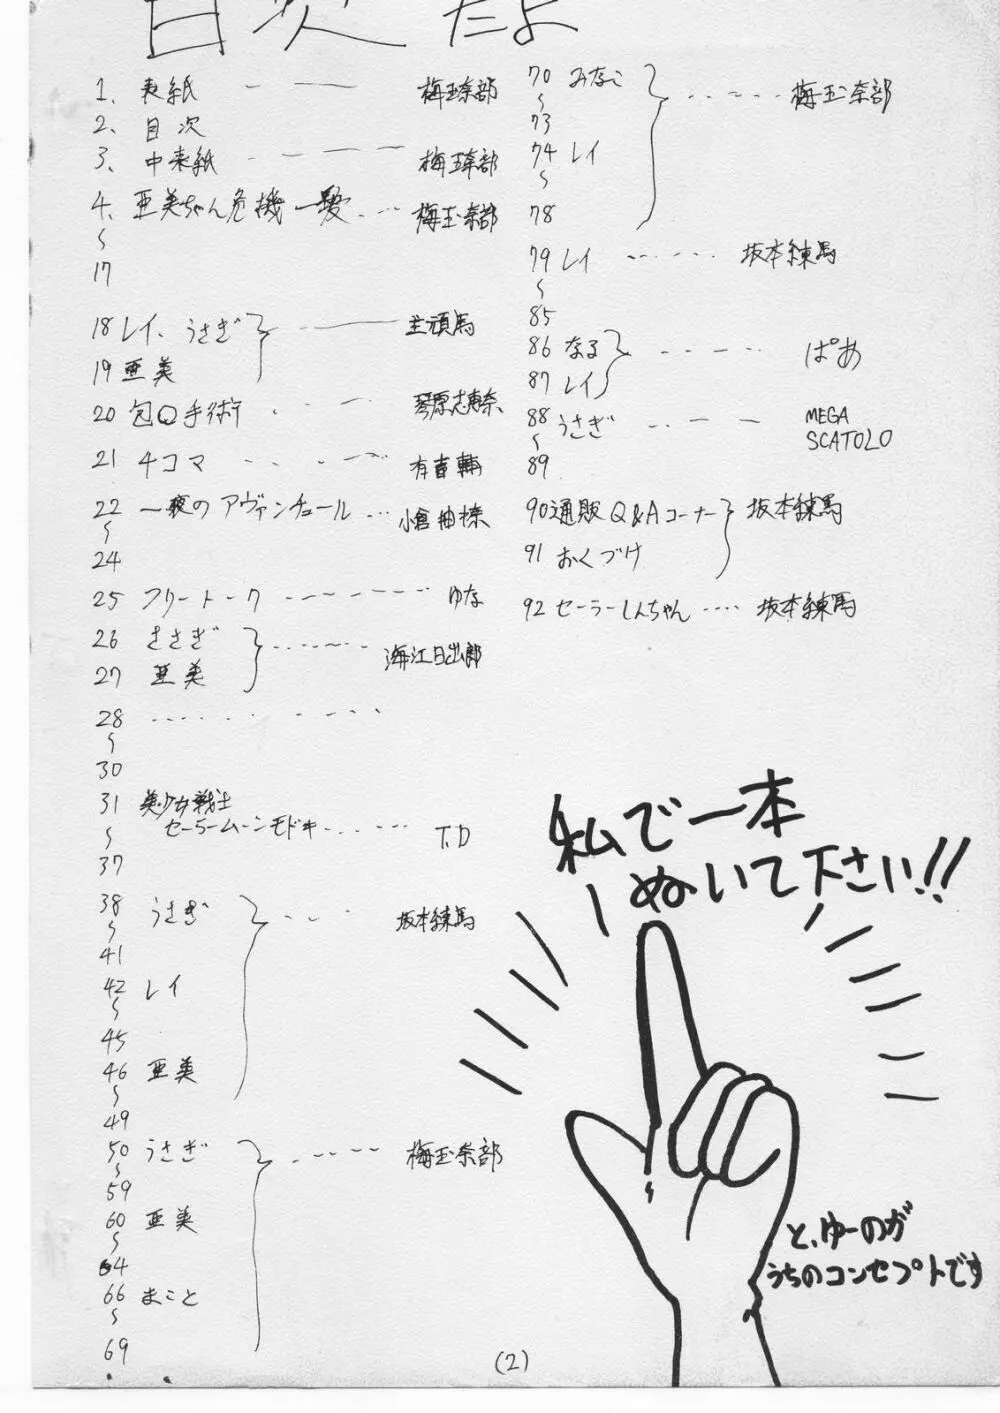 目次だよ
1、 表紙 梅玉奈部
2、 目次
3、 中表紙 梅玉奈部
4、 亜美ちゃん危機一髪 梅玉奈部
〜
17
18 レイ、うさぎ 主頑馬
19 亜美
20 包Q手術 琴原志恵奈
21 4コマ 有吉輔
22 一夜のアヴァンチュール 小倉柚榛
〜
24
25 フリートーク ゆな
26 うさぎ 海江田出郎
27 亜美
28
〜
30
31 美少女戦士
〜 セーラームーンモドキ T.D
37
38 うさぎ 坂本練馬
〜
41
42 レイ
〜
45
46 亜美
〜
49
50 うさぎ 梅玉奈部
〜
59
60 亜美
〜
64
66 まこと
〜
69
70 みなこ 梅玉奈部
〜
73
74 レイ
〜
78
79 レイ 坂本練馬
〜
85
86 なる ぱあ
87 レイ
88 うさぎ MEGA
〜 SCATOLO
89
90 通販Q&Aコーナー 坂本練馬
91 おくづけ
92 セーラーしんちゃん 坂本練馬
私で一本
ぬいて下さい!!
と、ゆーのが
うちのコンセプトです
(2)